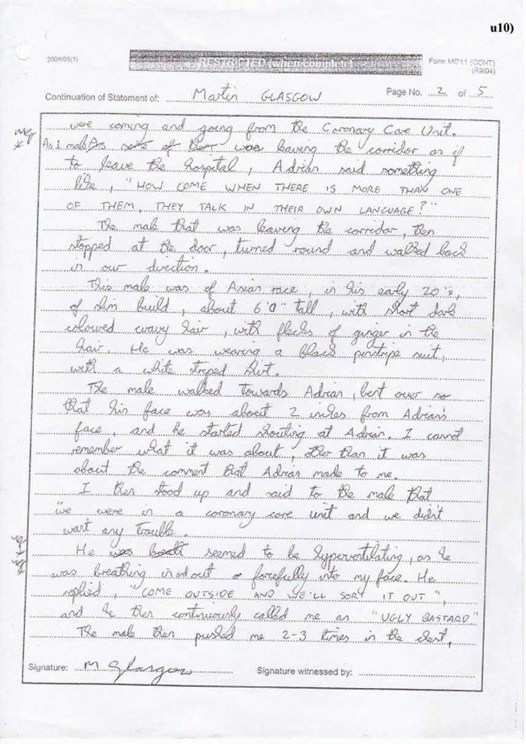 u10)
2004/05(1)
RESTRICTED (when complete)
Form MG11 (CONT)
(R9/04)
Continuation of Statement of: Martin GLASGOW
Page No. 2 of 5
were coming and going from the Coronary Care Unit.
MG
* As 1 male was leaving the corridor as if
to leave the hospital, Adrian said something
like, "HOW COME WHEN THERE IS MORE THAN ONE
OF THEM, THEY TALK IN THEIR OWN LANGUAGE?"
The male that was leaving the corridor, then
stopped at the door, turned round and walked back
in our direction.
This male was of Asian race, in his early 20's,
of slim build, about 6'0" tall, with short dark
coloured wavy hair, with flecks of ginger in the
hair. He was wearing a black pinstripe suit,
with a white striped shirt.
The male walked towards Adrian, bent over so
that his face was about 2 inches from Adrian's
face and he started shouting at Adrian. I cannot
remember what it was about, other than it was
about the comment that Adrian made to me.
I then stood up and said to the male that
"we were in a coronary care unit and we didn't
want any trouble.
He seemed to be hyperventilating, as he
was breathing in and out forcefully into my face. He
replied, "COME OUTSIDE AND WE'LL SORT IT OUT",
and he then continuously called me an "UGLY BASTARD"
The male then pushed me 2-3 times in the chest,
Signature: M Glasgow
Signature witnessed by: